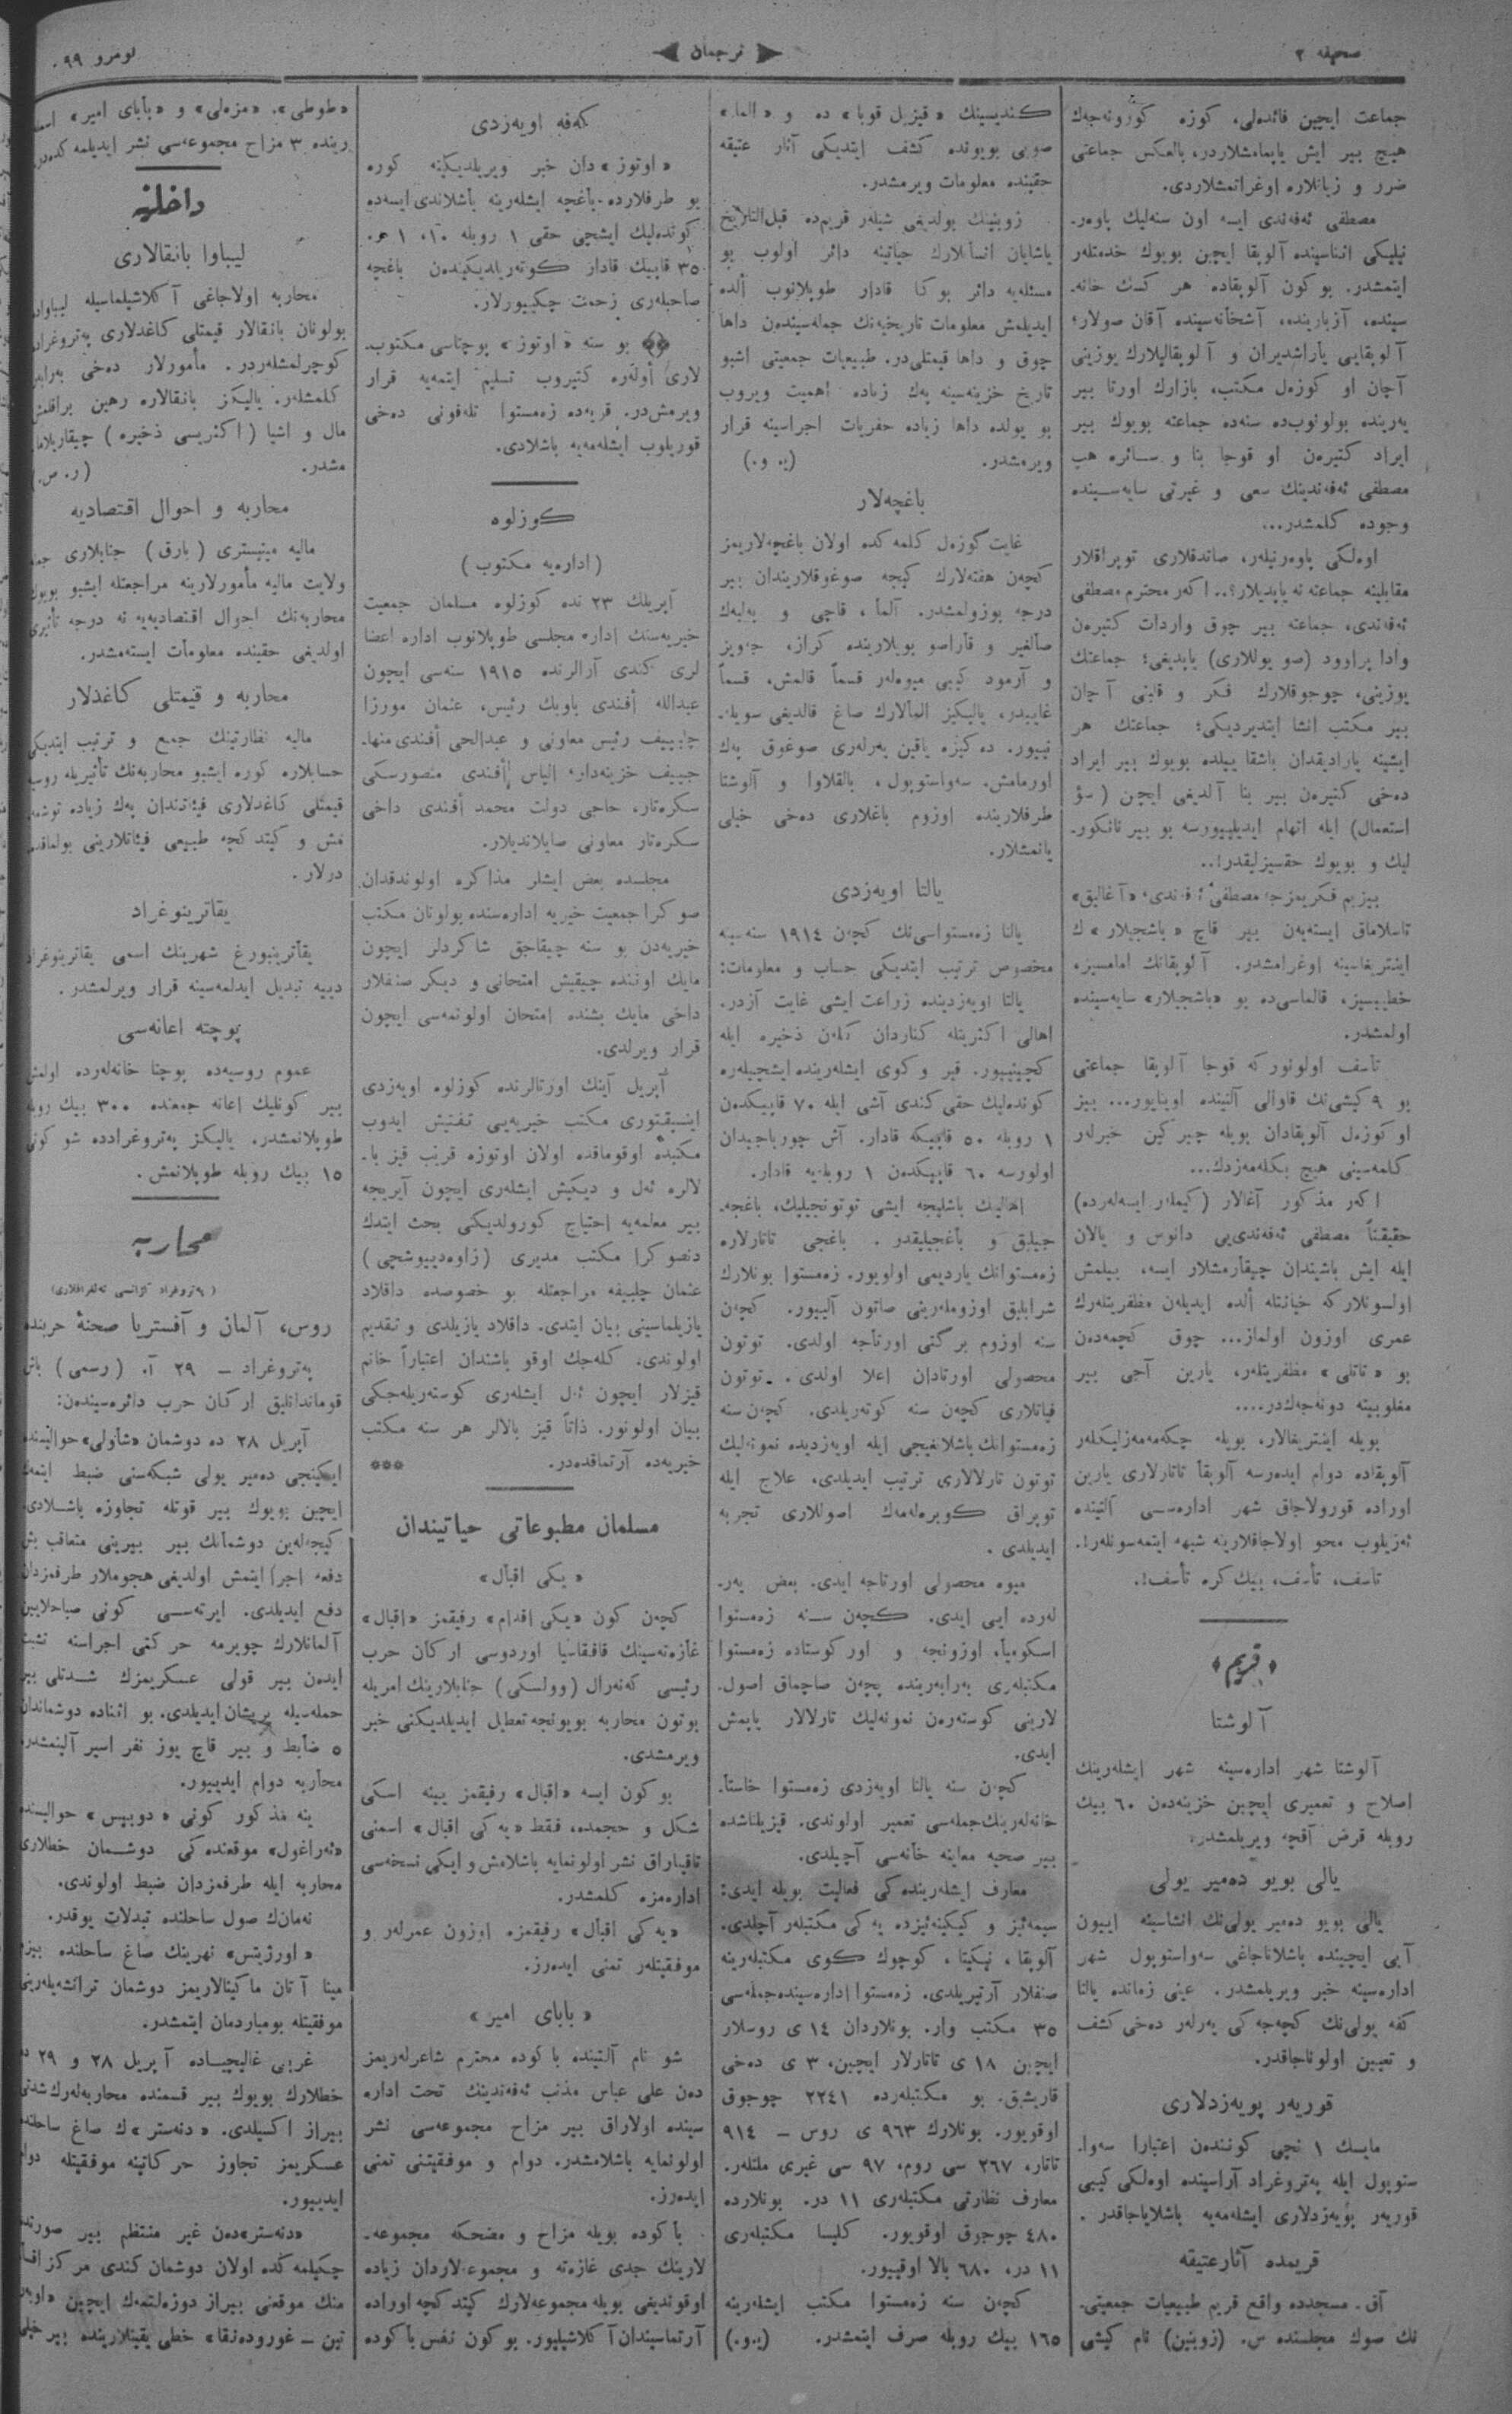 صحیفه ۲
ترجمان
نومرو ۹۹
جماعت ایچین فائده‌لی، كوزه كورونه‌جك
هیچ بیر ایش یاپمامشلاردر، بالعكس جماعتی
ضرر و زیانلاره اوغراتمشلاردی.
مصطفی ئه‌فه‌ندی ایسه اون سنه‌لیك پاوه‌ر-
نیلیكی اثناسینده آلوپقا ایچین بویوك خدمتله‌ر
ایتمشدر. بوكون آلوپقاده هر كسك خانه-
سینده، آزبارینده، آشخانه‌سینده آقان صولار؛
آلوپقایی یاراشدیران و آلوپقالیلارك یوزینی
آچان او كوزه‌ل مكتب، بازارك اورتا بیر
یه‌رینده بولونوب‌ده سنه‌ده جماعته بویوك بیر
ایراد كتیره‌ن او قوجا بنا و سائره هپ
مصطفی ئه‌فه‌ندینك سعی و غیرتی سایه‌سینده
وجوده كلمشدر...
اوه‌لكی پاوه‌رنیله‌ر، صاتدقلاری توپراقلار
مقابلینه جماعته نه یاپدیلار؟.. اكه‌ر محترم مصطفی
ئه‌فه‌ندی، جماعته بیر چوق واردات كتیره‌ن
وادا پراوود (صو یوللاری) یاپدیغی؛ جماعتك
یوزینی، چوجوقلارك فكر و قلبنی آچان
بیر مكتب انشا ایتدیردیكی؛ جماعتك هر
ایشینه یارادیقدان باشقا ییلده بویوك بیر ایراد
ده‌خی كتیره‌ن بیر بنا آلدیغی ایچن (سؤ
استعمال) ایله اتهام ایدیلییورسه بو بیر نانكور-
لیك و بویوك حقسیزلیقدر!..
بیزیم فكریمزجه مصطفی ئه‌فه‌ندی، «آغالیق»
تاسلاماق ایسته‌یه‌ن بیر قاچ «باشجیلار»ك
اینتریغاسینه اوغرامشدر. آلوپقانك امامسیز،
خطیبسیز، قالماسی‌ده بو «باشجیلار» سایه‌سینده
اولمشدر.
تأسف اولونور كه قوجا آلوپقا جماعتی
بو ۹ كیشی‌نك قاوالی آلتینده اوینایور... بیز
او كوزه‌ل آلوپقادان بویله چیركین خبرله‌ر
كلمه‌سینی هیچ بكله‌مه‌زدك...
اكه‌ر مذكور آغالار (كیمله‌ر ایسه‌له‌رده)
حقیقتاً مصطفی ئه‌فه‌ندی‌یی دانوس و یالان
ایله ایش باشیندان چیقارمشلار ایسه، بیلمش
اولسونلار كه خیانتله ألده ایدیله‌ن مظفریتله‌رك
عمری اوزون اولماز... چوق كچمه‌دن
بو «تاتلی» مظفریتله‌ر، یارین آجی بیر
مغلوبیته دونه‌جه‌كدر....
بویله اینتریغالار، بویله چكه‌مه‌مه‌زلیكله‌ر
آلوپقاده دوام ایده‌رسه آلوپقا تاتارلاری یارین
اوراده قورولاجاق شهر اداره‌سی آلتینده
ئه‌زیلوب محو اولاجاقلارینه شبهه ایتمه‌سونله‌ر!.
تأسف، تأسف، بیك كره تأسف!.
﴿قریم﴾
آلوشتا
آلوشتا شهر اداره‌سینه شهر ایشله‌رینك
اصلاح و تعمیری ایچین خزینه‌دن ۶۰ بیك
روبله قرض آقچه ویریلمشدر.
یالی بویو ده‌میر یولی
یالی بویو ده‌میر یولی‌نك انشاسینه اییون
آیی ایچینده باشلاناجاغی سه‌واستوپول شهر
اداره‌سینه خبر ویریلمشدر. عینی زمانده یالتا
كفه یولی‌نك كچه‌جه‌كی یه‌رله‌ر ده‌خی كشف
و تعیین اولوناجاقدر.
قوریه‌ر پویه‌زدلاری
مایسك ۱ نچی كونندن اعتبارا سه‌وا-
ستوپول ایله په‌تروغراد آراسینده اوه‌لكی كیبی
قوریه‌ر پویه‌زدلاری ایشله‌مه‌یه باشلایاجاقدر.
قریمده آثارعتیقه
آق-مسجدده واقع قریم طبیعیات جمعیتی-
نك صوك مجلسنده س. (زوبنین) نام كیشی
كندیسینك «قیزیل قوبا» ده و «الما»
صویی بویونده كشف ایتدیكی آثار عتیقه
حقینده معلومات ویرمشدر.
زوبنینك بولدیغی شیله‌ر قریم‌ده قبل‌التاریخ
یاشایان انسانلارك حیاتینه دائر اولوب بو
مسئله‌یه دائر بوكا قادار طوپلانوب ألده
ایدیلمش معلومات تاریخیه‌نك جمله‌سیندن داها
چوق و داها قیمتلی‌در. طبیعیات جمعیتی اشبو
تاریخ خزینه‌سینه په‌ك زیاده اهمیت ویروب
بو یولده داها زیاده حفریات اجراسینه قرار
ویرمشدر. (یه. و.)
باغچه‌لار
غایت گوزه‌ل كلمه‌كده اولان باغچه‌لاریمز
كچه‌ن هفته‌لارك كیجه صوغوقلاریندان بیر
درجه بوزولمشدر. آلما، قاچی و به‌لبه‌ك
صالغیر و قاراصو بویلارینده كراز، جه‌ویز
و آرمود كیبی میوه‌له‌ر قسماً قالمش، قسماً
غاییدر، یالیكیز المالارك صاغ قالدیغی سویله-
نییور. ده‌كیزه یاقین یه‌رله‌ری صوغوق په‌ك
اورمامش. سه‌واستوپول، بالقلاوا و آلوشتا
طرفلارینده اوزوم باغلاری ده‌خی خیلی
یانمشلار.
یالتا اویه‌زدی
یالتا زه‌مستواسی‌نك كچه‌ن ۱۹۱۴ سنه‌سینه
مخصوص ترتیب ایتدیكی حساب و معلومات:
یالتا اویه‌زدینده زراعت ایشی غایت آزدر.
اهالی اكثریتله كناردان كله‌ن ذخیره ایله
كچینییور. قیر و كوی ایشله‌رینده ایشچیله‌ره
كونده‌لیك حقی كندی آشی ایله ۷۰ قاپیكدن
۱ روبله ۵۰ قاپیكه قادار. آش چورباجیدان
اولورسه ۶۰ قاپیكدن ۱ روبله‌یه قادار.
اهالینك باشلیجه ایشی توتونجیلیك، باغچه-
جیلیق و باغجیلیقدر. باغجی تاتارلاره
زه‌مستوانك یاردیمی اولویور. زه‌مستوا بونلارك
شرابلیق اوزومله‌رینی صاتون آلییور. كچه‌ن
سنه اوزوم بركتی اورتاجه اولدی. توتون
محصولی اورتادان اعلا اولدی. توتون
فیاتلاری كچه‌ن سنه كوته‌ریلدی. كچه‌ن سنه
زه‌مستوانك باشلانغیجی ایله اویه‌زدیده نمونه‌لیك
توتون تارلالاری ترتیب ایدیلدی، علاج ایله
توپراق كوبره‌له‌مه‌ك اصوللاری تجربه
ایدیلدی.
میوه محصولی اورتاجه ایدی. بعض یه‌ر-
له‌رده ایی ایدی. كچه‌ن سنه زه‌مستوا
اسكومیا، اوزونجه و اوركوستاده زه‌مستوا
مكتبله‌ری به‌رابه‌رینده پچه‌ن صاچماق اصول-
لارینی كوسته‌ره‌ن نمونه‌لیك تارلالار یاپمش
ایدی.
كچه‌ن سنه یالتا اویه‌زدی زه‌مستوا خاستا-
خانه‌له‌رینك جمله‌سی تعمیر اولوندی. قیزیلتاشده
بیر صحیه معاینه خانه‌سی آچیلدی.
معارف ایشله‌رینده‌كی فعالیت بویله ایدی:
سیمه‌ئیز و كیكینه‌ئیزده یه‌كی مكتبله‌ر آچلدی.
آلوپقا، نیكیتا، كوچوك كوی مكتبله‌رینه
صنفلار آرتیریلدی. زه‌مستوا اداره‌سینده جمله‌سی
۳۵ مكتب وار. بونلاردان ۱۴ ی روسلار
ایچین ۱۸ ی تاتارلار ایچین، ۳ ی ده‌خی
قاریشیق. بو مكتبله‌رده ۲۲۴۱ چوجوق
اوقویور. بونلارك ۹۶۳ ی روس – ۹۱۴
تاتار، ۲۶۷ سی روم، ۹۷ سی غیری ملتله‌ر.
معارف نظارتی مكتبله‌ری ۱۱ در. بونلارده
۴۸۰ چوجوق اوقویور. كلیسا مكتبله‌ری
۱۱ در، ۶۸۰ بالا اوقییور.
كچه‌ن سنه زه‌مستوا مكتب ایشله‌رینه
۱۶۵ بیك روبله صرف ایتمشدر. (یه.و.)
كه‌فه اویه‌زدی
«اوتوز»دان خبر ویریلدیكینه كوره
بو طرفلارده باغچه ایشله‌رینه باشلاندی ایسه‌ده
كونده‌لیك ایشچی حقی ۱ روبله ۱۰،
۳۵ قاپیك قادار كوته‌ریلدیكیندن باغچه
صاحبله‌ری زحمت چكییورلار.
بو سنه «اوتوز» پوچتاسی مكتوب-
لاری أوله‌ره كتیروب تسلیم ایتمه‌یه قرار
ویرمش‌در. قریه‌ده زه‌مستوا تله‌فونی ده‌خی
قوریلوب ایشله‌مه‌یه باشلادی.
كوزلوه
(اداره‌یه مكتوب)
آپریلك ۲۳ نده كوزلوه مسلمان جمعیت
خیریه‌سنك اداره مجلسی طوپلانوب اداره اعضا
لری كندی آرالرنده ۱۹۱۵ سنه‌سی ایچون
عبدالله أفندی باوبك رئیس، عثمان مورزا
چلبییف رئیس معاونی و عبدالحی أفندی منها-
جییف خزینه‌دار، الیاس أفندی منصورسكی
سكره‌تار، حاجی دولت محمد أفندی داخی
سكره‌تار معاونی صایلاندیلار.
مجلسده بعض ایشلر مذاكره اولوندقدان
صوكرا جمعیت خیریه اداره‌سنده بولونان مكتب
خیریه‌دن بو سنه چیقاجق شاكردلر ایچون
مایك اوننده چیقیش امتحانی و دیكر صنفلار
داخی مایك بشنده امتحان اولونمه‌سی ایچون
قرار ویرلدی.
آپریل آینك اورتالرنده كوزلوه اویه‌زدی
اینسپقتوری مكتب خیریه‌یی تفتیش ایدوب
مكتبده اوقوماقده اولان اوتوزه قریب قیز با-
لالره ئه‌ل و دیكیش ایشله‌ری ایچون آیریجه
بیر معلمه‌یه احتیاج كورولدیكی بحث ایتدك
دنصوكرا مكتب مدیری (زاوه‌دییوشچی)
عثمان چلبییفه مراجعتله بو خصوصده داقلاد
یازیلماسینی بیان ایتدی. داقلاد یازیلدی و تقدیم
اولوندی. كله‌جك اوقو باشندان اعتباراً خانم
قیزلار ایچون ئه‌ل ایشله‌ری كوسته‌ریله‌جكی
بیان اولونور. ذاتاً قیز بالالر هر سنه مكتب
خیریه‌ده آرتماقده‌در. ***
مسلمان مطبوعاتی حیاتیندان
«یكی اقبال»
كچه‌ن كون «یكی اقدام» رفیقمز «اقبال»
غازه‌ته‌سینك قافقاسیا اوردوسی اركان حرب
رئیسی گه‌نه‌رال (وولسكی) جنابلارینك امریله
بوتون محاربه بویونجه تعطیل ایدیلدیكنی خبر
ویرمشدی.
بوكون ایسه «اقبال» رفیقمز یینه اسكی
شكل و حجمده، فقط «یه‌كی اقبال» اسمنی
تاقیناراق نشر اولونمایه باشلامش و ایكی نسخه‌سی
اداره‌مزه كلمشدر.
«یه‌كی اقبال» رفیقمزه اوزون عمرله‌ر و
موفقیتله‌ر تمنی ایده‌رز.
«بابای امیر»
شو نام آلتینده باكوده محترم شاعرله‌ریمز
ده‌ن علی عباس مذنب ئه‌فه‌ندینك تحت اداره
سینده اولاراق بیر مزاح مجموعه‌سی نشر
اولونمایه باشلامشدر. دوام و موفقیتنی تمنی
ایده‌رز.
باكوده بویله مزاح و مضحكه مجموعه-
لارینك جدی غازه‌ته و مجموعه‌لاردان زیاده
اوقوندیغی بویله مجموعه‌لارك كیتدكچه اوراده
آرتماسیندان آكلاشیلییور. بوكون نفس باكوده
«طوطی»، «مزه‌لی» و «بابای امیر» اسمه
رینده ۳ مزاح مجموعه‌سی نشر ایدیلمه‌كده‌در.
داخلیه
لیباوا بانقالاری
محاربه اولاجاغی آكلاشیلماسیله لیباواده
بولونان بانقالار قیمتلی كاغدلاری په‌تروغراده
كوچرلمشله‌ردر. مأمورلار ده‌خی به‌رابه‌ر
كلمشله‌ر. یالیكز بانقالاره رهین براقلمش
مال و اشیا (اكثریسی ذخیره) چیقاریلاما
مشدر. (ر. ص.)
محاربه و احوال اقتصادیه
مالیه مینیستری (بارق) جنابلاری جمله
ولایت مالیه مأمورلارینه مراجعتله ایشبو بویوك
محاربه‌نك احوال اقتصادیه‌یه نه درجه تأثیری
اولدیغی حقینده معلومات ایسته‌مشدر.
محاربه و قیمتلی كاغدلار
مالیه نظارتینك جمع و ترتیب ایتدیكی
حسابلاره كوره ایشبو محاربه‌نك تأثیریله روسیه
قیمتلی كاغدلاری فیئاتندان په‌ك زیاده توشمه
مش و كیتدكچه طبیعی فیئاتلارینی بولماقده
درلار.
یقاترینوغراد
یقاترینبورغ شهرینك اسمی یقاترینوغراد
دییه تبدیل ایدلمه‌سینه قرار ویرلمشدر.
پوچته اعانه‌سی
عموم روسیه‌ده پوچتا خانه‌له‌رده اولمش
بیر كونلیك اعانه جمعنده ۳۰۰ بیك روبله
طوپلانمشدر. یالیكز په‌تروغرادده شو كونی
۱۵ بیك روبله طوپلانمش.
محاربه
(په‌تروغراد آژانسی ته‌لغرافلاری)
روس، آلمان و آفستریا صحنهٔ حربنده
په‌تروغراد – ۲۹ آ. (رسمی) باش
قوماندانلیق اركان حرب دائره‌سیندن:
آپریل ۲۸ ده دوشمان «شاولی» حوالیسنده
ایكینچی ده‌میر یولی شبكه‌سنی ضبط ایتمه‌ك
ایچین بویوك بیر قوتله تجاوزه باشلادی.
كیجه‌له‌ین دوشمانك بیر بیرینی متعاقب بش
دفعه اجرا ایتمش اولدیغی هجوملار طرفمزدان
دفع ایدیلدی. ایرته‌سی كونی صباحلایین
آلمانلارك چویرمه حركتی اجراسنه تشبث
ایده‌ن بیر قولی عسكریمزك شدتلی بیر
حمله‌سیله پریشان ایدیلدی. بو اثناده دوشماندان
۵ ضابط و بیر قاچ یوز نفر اسیر آلینمشدر.
محاربه دوام ایدییور.
ینه مذكور كونی «دوبیس» حوالیسنده
«ئه‌راغول» موقعنده‌كی دوشمان خطلاری
محاربه ایله طرفمزدان ضبط اولوندی.
نه‌مان‌ك صول ساحلنده تبدلات یوقدر.
«اورژیتس» نهرینك صاغ ساحلنده بیزم
مینا آتان ماكینالاریمز دوشمان ترانشه‌یله‌رینی
موفقیتله بومباردمان ایتمشدر.
غربی غالیچیاده آپریل ۲۸ و ۲۹ ده
خطلارك بویوك بیر قسمنده محاربه‌له‌رك شدتی
بیراز اكسیلدی. «دنه‌ستر»ك صاغ ساحلنده
عسكریمز تجاوز حركاتینه موفقیتله دوام
ایدییور.
«دنه‌ستر»دن غیر منتظم بیر صورتده
چكیلمه‌كده اولان دوشمان كندی مركز
منك موقعنی بیراز دوزه‌لتمه‌ك ایچین
تین – غوروده‌نقا» خطی یقینلارینده بیر خیلی